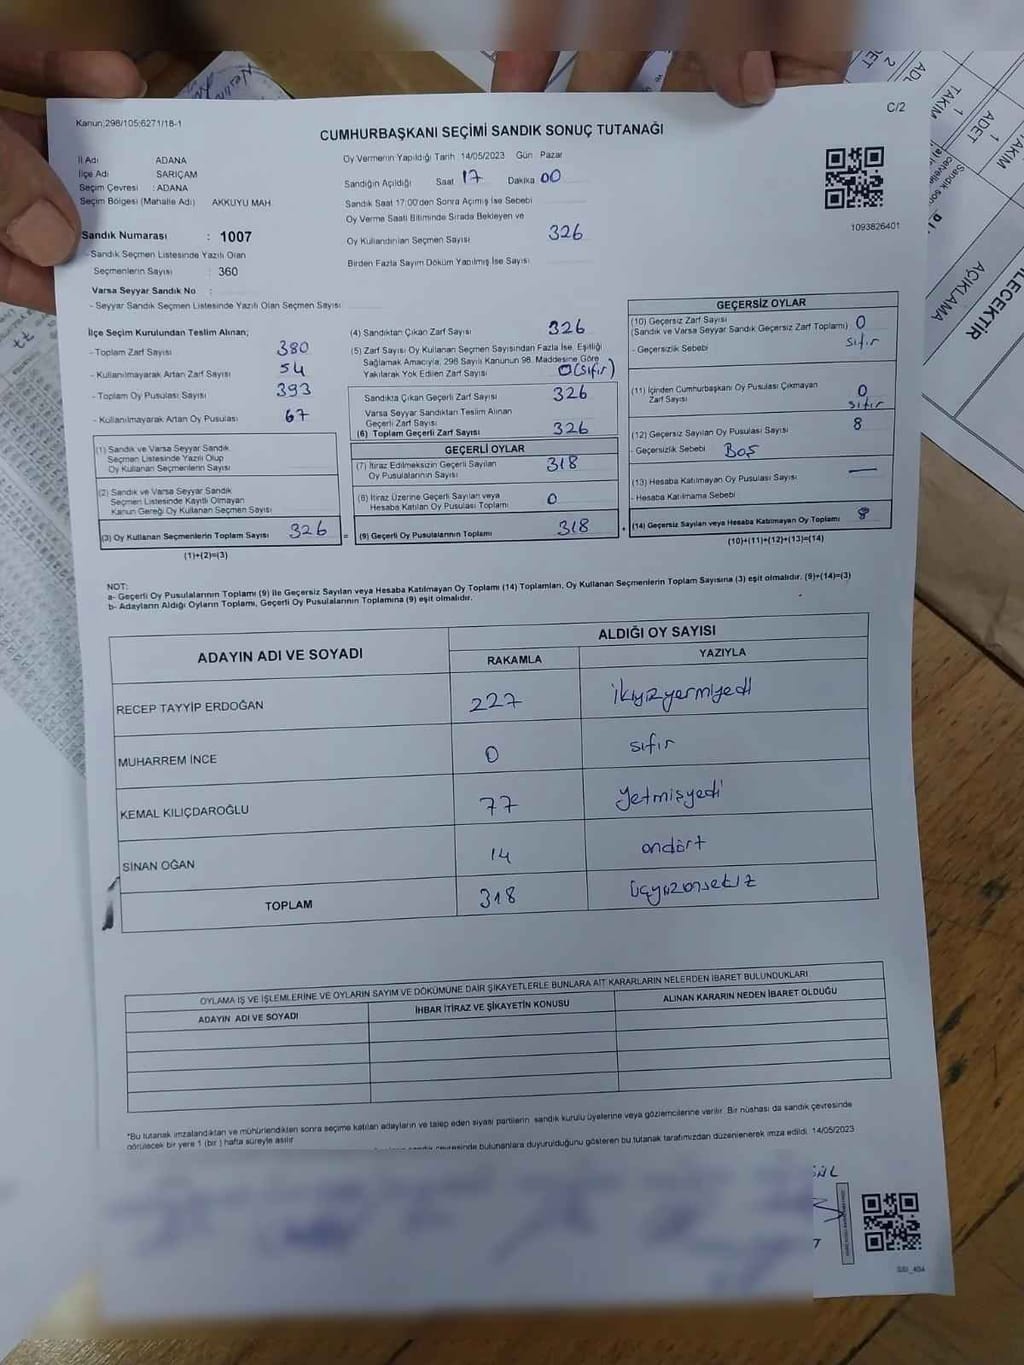 C/2
Kanun;298/105;6271/18-1
CUMHURBAŞKANI SEÇİMİ SANDIK SONUÇ TUTANAĞI
1093826401
İl Adı ADANA
İlçe Adı SARIÇAM
Seçim Çevresi : ADANA
Seçim Bölgesi (Mahalle Adı) AKKUYU MAH
Sandık Numarası : 1007
- Sandık Seçmen Listesinde Yazılı Olan
Seçmenlerin Sayısı : 360
Varsa Seyyar Sandık No :
- Seyyar Sandık Seçmen Listesinde Yazılı Olan Seçmen Sayısı
Oy Vermenin Yapıldığı Tarih 14/05/2023 Gün Pazar
Sandığın Açıldığı Saat 17 Dakika 00
Sandık Saat 17:00'den Sonra Açımış İse Sebebi
Oy Verme Saati Bitiminde Sırada Bekleyen ve
Oy Kullandırılan Seçmen Sayısı 326
Birden Fazla Sayım Döküm Yapılmış İse Sayısı
İlçe Seçim Kurulundan Teslim Alınan;
- Toplam Zarf Sayısı 380
- Kullanılmayarak Artan Zarf Sayısı 54
- Toplam Oy Pusulası Sayısı 393
- Kullanılmayarak Artan Oy Pusulası 67
(1) Sandık ve Varsa Seyyar Sandık
Seçmen Listesinde Yazılı Olup
Oy Kullanan Seçmenlerin Sayısı
(2) Sandık ve Varsa Seyyar Sandık
Seçmen Listesinde Kayıtlı Olmayan
Kanun Gereği Oy Kullanan Seçmen Sayısı
(3) Oy Kullanan Seçmenlerin Toplam Sayısı 326
(1)+(2)=(3)
(4) Sandıktan Çıkan Zarf Sayısı 326
(5) Zarf Sayısı Oy Kullanan Seçmen Sayısından Fazla İse, Eşitliği
Sağlamak Amacıyla, 298 Sayılı Kanunun 98. Maddesine Göre
Yakılarak Yok Edilen Zarf Sayısı 0(sıfır)
Sandıkta Çıkan Geçerli Zarf Sayısı 326
Varsa Seyyar Sandıktan Teslim Alınan
Geçerli Zarf Sayısı
(6) Toplam Geçerli Zarf Sayısı 326
GEÇERLİ OYLAR
(7) İtiraz Edilmeksizin Geçerli Sayılan
Oy Pusulalarının Sayısı 318
(8) İtiraz Üzerine Geçerli Sayılan veya
Hesaba Katılan Oy Pusulası Toplamı 0
= (9) Geçerli Oy Pusulalarının Toplamı 318
GEÇERSİZ OYLAR
(10) Geçersiz Zarf Sayısı
(Sandık ve Varsa Seyyar Sandık Geçersiz Zarf Toplamı) 0
- Geçersizlik Sebebi sıfır
(11) İçinden Cumhurbaşkanı Oy Pusulası Çıkmayan
Zarf Sayısı 0
sıfır
(12) Geçersiz Sayılan Oy Pusulası Sayısı 8
- Geçersizlik Sebebi Boş
(13) Hesaba Katılmayan Oy Pusulası Sayısı —
- Hesaba Katılmama Sebebi
+ (14) Geçersiz Sayılan veya Hesaba Katılmayan Oy Toplamı 8
(10)+(11)+(12)+(13)=(14)
NOT:
a- Geçerli Oy Pusulalarının Toplamı (9) ile Geçersiz Sayılan veya Hesaba Katılmayan Oy Toplamı (14) Toplamları, Oy Kullanan Seçmenlerin Toplam Sayısına (3) eşit olmalıdır. (9)+(14)=(3)
b- Adayların Aldığı Oyların Toplamı, Geçerli Oy Pusulalarının Toplamına (9) eşit olmalıdır.
ADAYIN ADI VE SOYADI
ALDIĞI OY SAYISI
RAKAMLA YAZIYLA
RECEP TAYYİP ERDOĞAN 227 ikiyüzyirmiyedi
MUHARREM İNCE 0 sıfır
KEMAL KILIÇDAROĞLU 77 Yetmişyedi
SİNAN OĞAN 14 ondört
TOPLAM 318 üçyüzonsekiz
OYLAMA İŞ VE İŞLEMLERİNE VE OYLARIN SAYIM VE DÖKÜMÜNE DAİR ŞİKAYETLERLE BUNLARA AİT KARARLARIN NELERDEN İBARET BULUNDUKLARI
ADAYIN ADI VE SOYADI İHBAR İTİRAZ VE ŞİKAYETİN KONUSU ALINAN KARARIN NEDEN İBARET OLDUĞU
*Bu tutanak imzalandıktan ve mühürlendikten sonra seçime katılan adayların ve talep eden siyasi partilerin sandık kurulu üyelerine veya gözlemcilerine verilir. Bir nüshası da sandık çevresinde
görülecek bir yere 1 (bir ) hafta süreyle asılır
çevresinde bulunanlara duyurulduğunu gösteren bu tutanak tarafımızdan düzenlenerek imza edildi. 14/05/2023
TAKIM
ADET
AÇIKLAMA